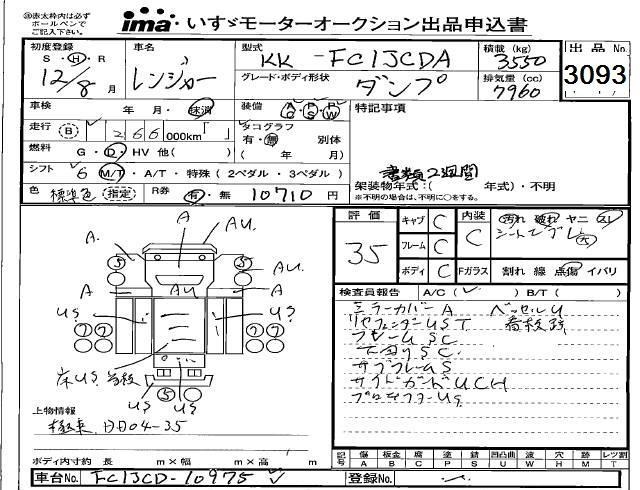 ※赤太枠内は必ずボールペンでご記入下さい。
ima いすゞモーターオークション出品申込書
初度登録 S・H・R 12/8月
車名 レンジャー
型式 KK-FC1JCDA
積載 (kg) 3550
出品 No. 3093
グレード・ボディ形状 ダンプ
排気量 (cc) 7960
車検 年 月・抹消
装備 AC・PS・PW
特記事項
走行 (B) 266 000km
タコグラフ 有・無 別体 ( 年 月)
燃料 G・D・HV 他( )
書類2週間
シフト 6 M/T・A/T・特殊 (2ペダル・3ペダル)
架装物年式:( 年式)・不明
※不明の場合は、不明に○をする。
色 標準色 (指定)
R券 有・無 10710 円
評価 35
キャブ C
フレーム C
ボディ C
内装 C
汚れ 破れ ヤニ スレ
Fガラス 割れ 線 点傷 イバリ
検査員報告 A/C( ) B/T( )
ミラーカバーA
リヤフェンダーUST
フレームSC
下回りSC
サブフレームS
サイドガードUCH
A. A AU. S AU. A AU A
US US
床US
US US
S
上物情報
ボディ内寸約 長 m×幅 m×高 m
記号 傷A 板金B 腐C 塗P 錆S 凹凸曲U 波W 穴H 跡M レツ割T
車台No. FC1JCD-10975
登録No.